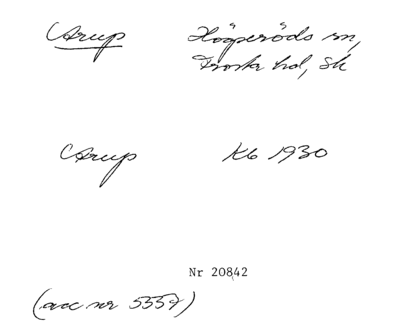 Arup Högseröds sn,
Frosta hd, Sk
Arup Kb 1930
Nr 20842
(acc nr 5557)